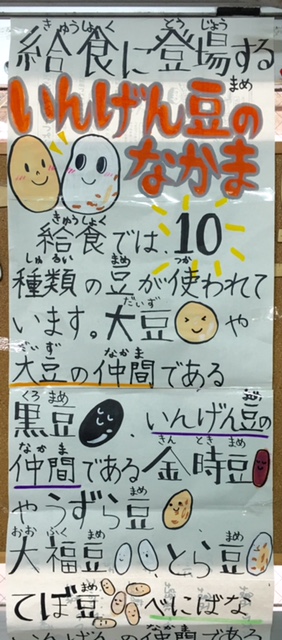 給食に登場する
いんげん豆の
なかま
給食では、10
種類の豆が使われて
います。大豆や
大豆の仲間である
黒豆、いんげん豆の
仲間である金時豆
やうずら豆
大福豆、とら豆
てぼ豆 べにばな
いんげんの仲間である